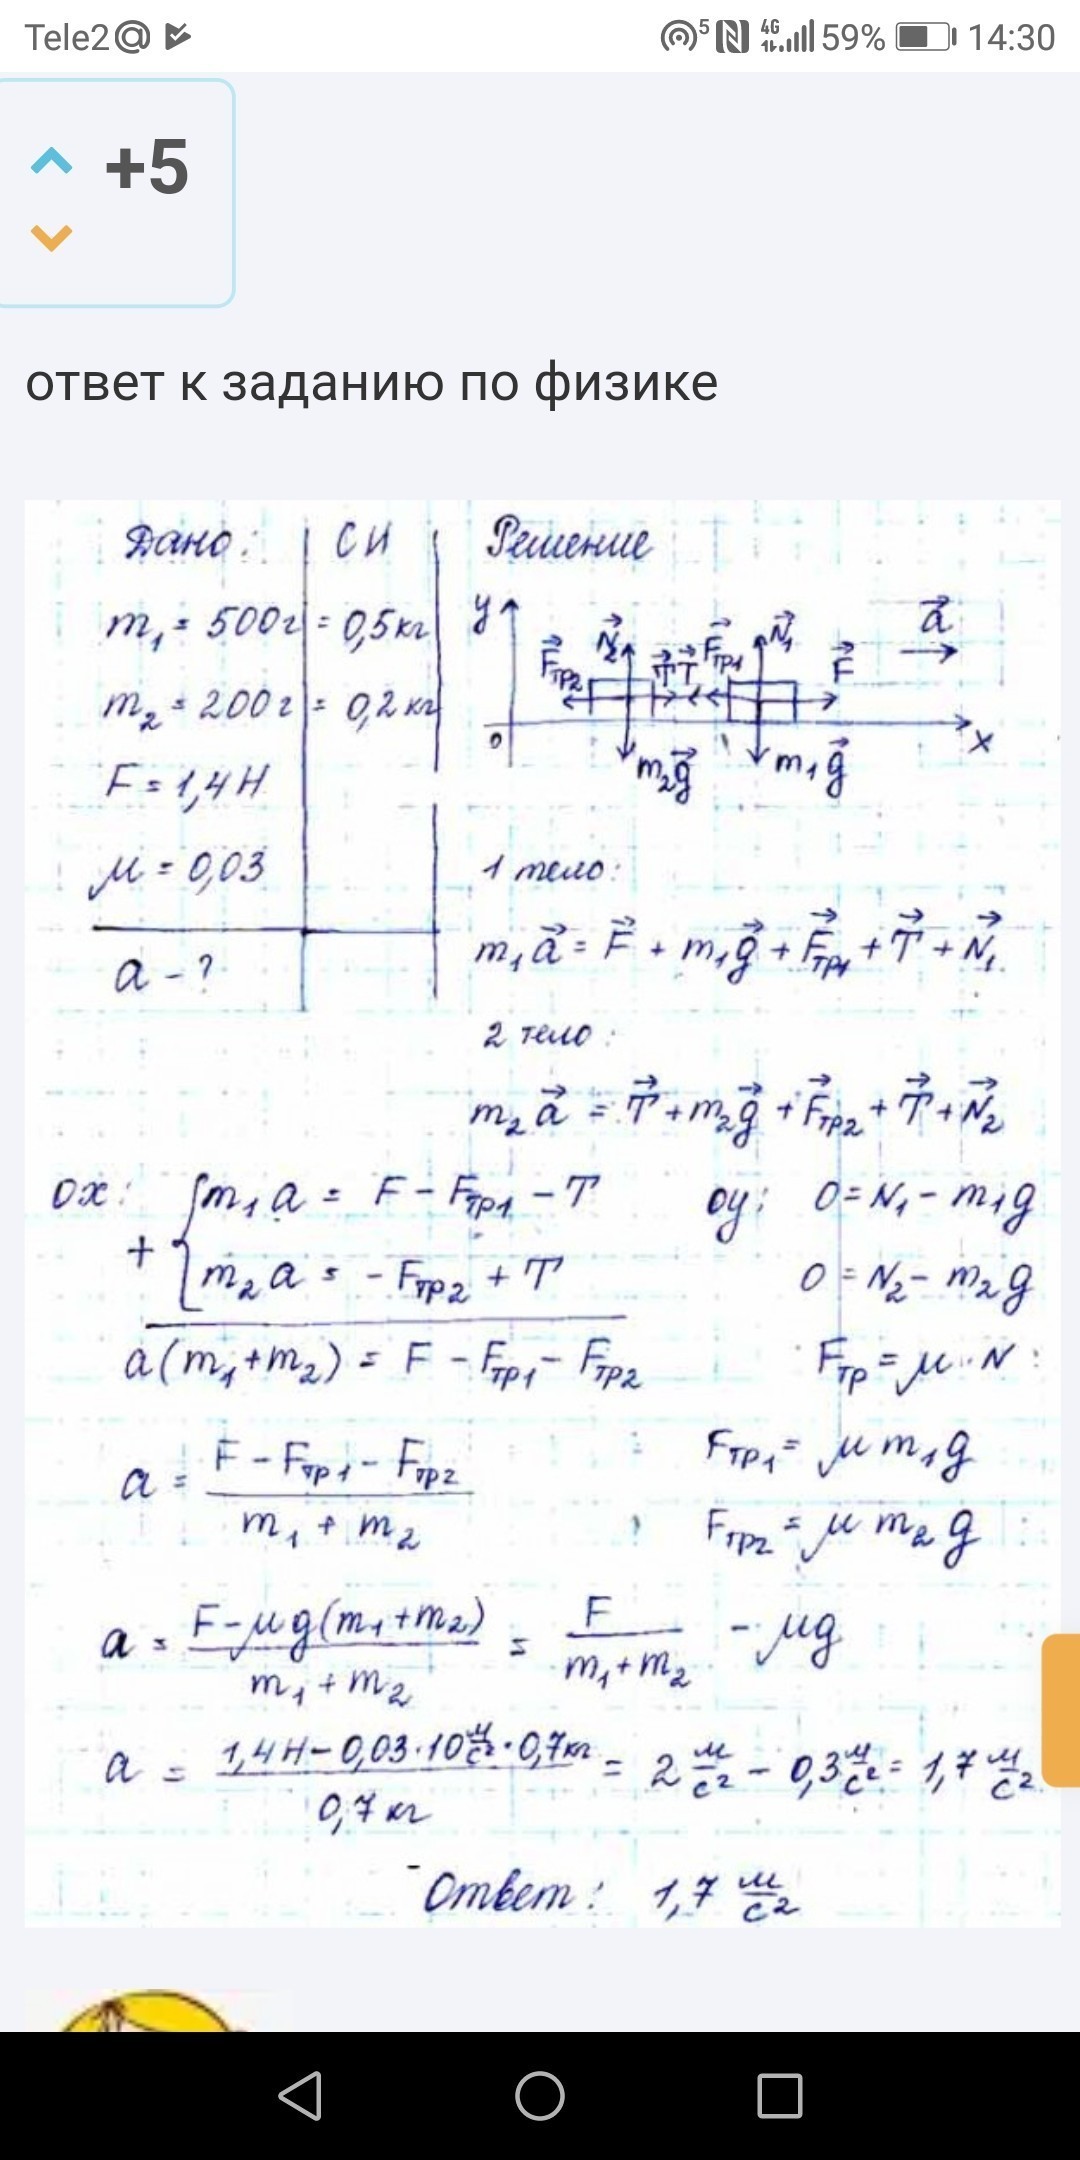 Tele2@ 5 4G 59% 14:30
+5
ответ к заданию по физике
Дано: СИ Решение
m₁ = 500г = 0,5кг
m₂ = 200г = 0,2кг
F = 1,4Н
μ = 0,03
a - ?
y F⃗тр2 N⃗₂ T⃗ T⃗ F⃗тр1 N⃗₁ F⃗ a⃗
0 m₂g⃗ m₁g⃗ x
1 тело:
m₁a⃗ = F⃗ + m₁g⃗ + F⃗тр1 + T⃗ + N⃗₁
2 тело:
m₂a⃗ = T⃗ + m₂g⃗ + F⃗тр2 + T⃗ + N⃗₂
ox: m₁a = F - Fтр1 - T oy: 0 = N₁ - m₁g
+ m₂a = - Fтр2 + T 0 = N₂ - m₂g
a(m₁+m₂) = F - Fтр1 - Fтр2 Fтр = μ·N:
a = (F - Fтр1 - Fтр2)/(m₁ + m₂) Fтр1 = μm₁g
Fтр2 = μm₂g
a = (F - μg(m₁+m₂))/(m₁ + m₂) = F/(m₁+m₂) - μg
a = (1,4Н - 0,03·10 м/с²·0,7кг)/(0,7 кг) = 2 м/с² - 0,3 м/с² = 1,7 м/с²
Ответ: 1,7 м/с²